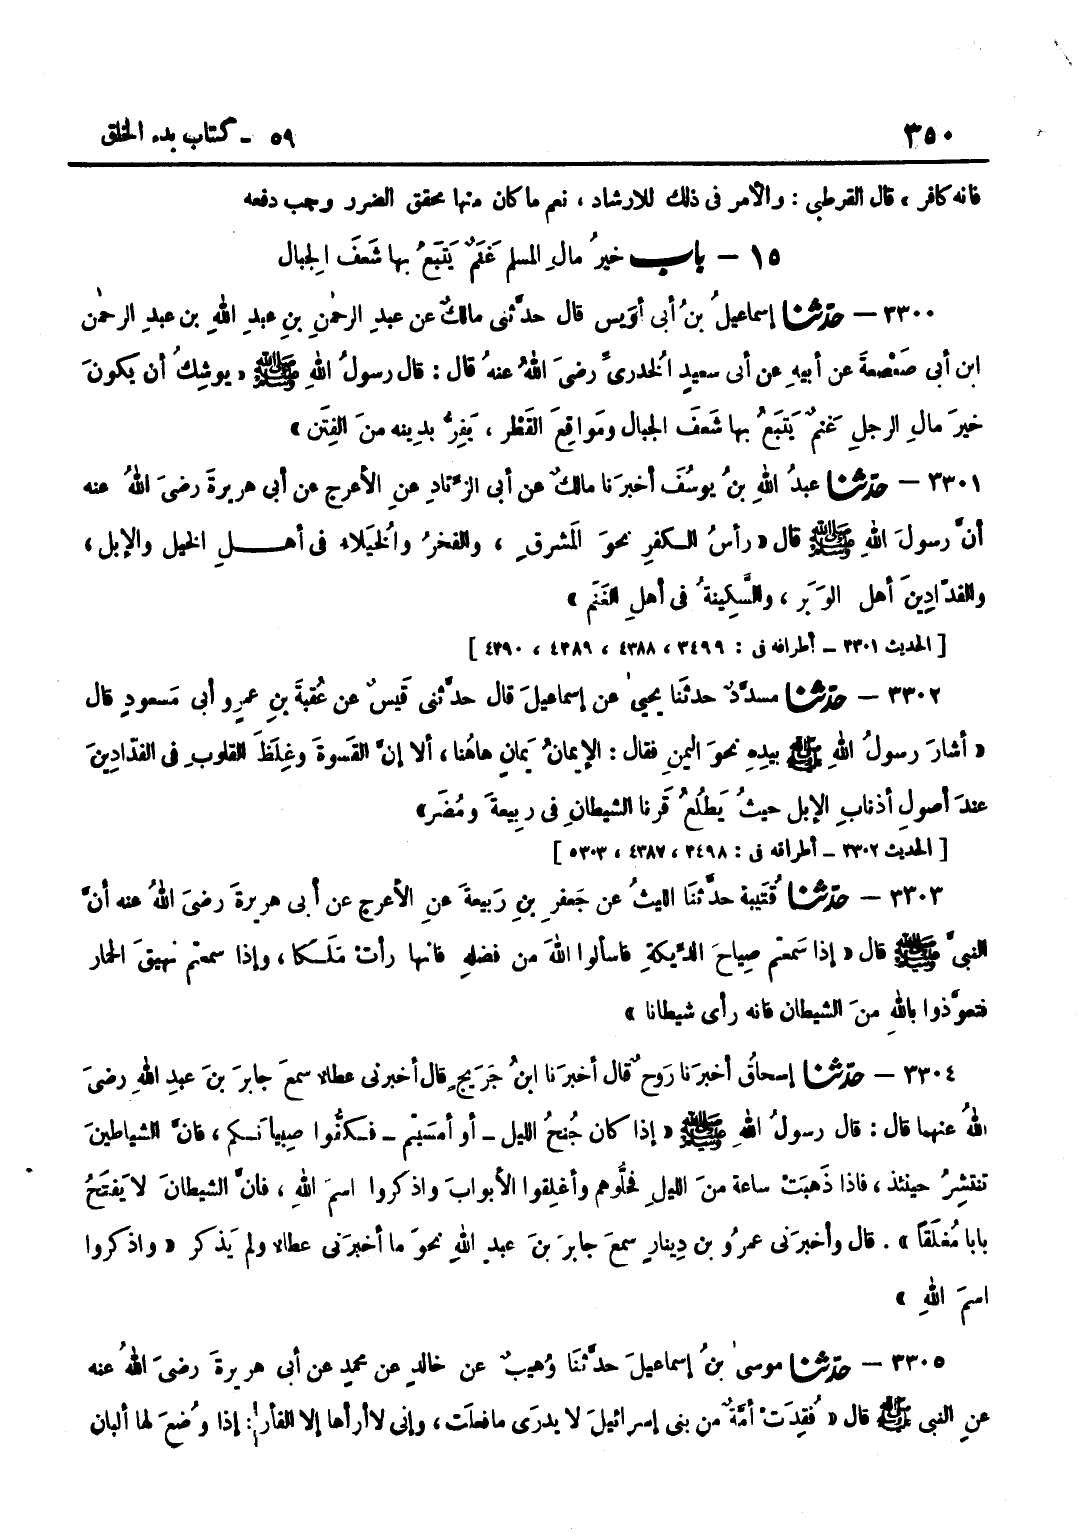 ٣٥٠ ٥٩ ـ كتاب بدء الخلق
فانه كافر ، قال القرطبي : والأمر فى ذلك للارشاد ، نعم ما كان منها محقق الضرر وجب دفعه
١٥ – باب خيرُ مالِ المسلم غَنَمٌ يَتبَعُ بها شَعَفَ الجبال
٣٣٠٠ – حدّثنا إسماعيلُ بنُ أبى أوَيس قال حدَّثنى مالكٌ عن عبدِ الرحمٰنِ بنِ عبدِ اللهِ بن عبدِ الرحمٰن
ابن أبى صَعْصعةَ عن أبيهِ عن أبى سعيدٍ الُخدرىِّ رضىَ اللهُ عنهُ قال : قال رسولُ اللهِ ﷺ « يوشِكُ أن يكونَ
خيرَ مالِ الرجلِ غنمٌ يَتبَعُ بها شَعَفَ الجبال ومَواقِعَ القَطْر ، يَفِرُّ بدِينه منَ الفِتَن »
٣٣٠١ – حدّثنا عبدُ اللهِ بنُ يوسُفَ أخبرَنا مالكٌ عن أبى الزِّنادِ عنِ الأعرجِ عن أبى هريرةَ رضىَ اللهُ عنه
أنَّ رسولَ اللهِ ﷺ قال « رأسُ الكفرِ نحوَ المَشرقِ ، والفخرُ والُخيَلاءِ فى أهلِ الخيل والإبل ،
والفدّادِينَ أهل الوَبَر ، والسَّكِينةُ فى أهلِ الغَنَم »
[ الحديث ٣٣٠١ ـ أطرافه فى : ٣٤٩٩ ، ٤٣٨٨ ، ٤٣٨٩ ، ٤٣٩٠ ]
٣٣٠٢ – حدّثنا مسدَّدٌ حدثَنا يحيىٰ عن إسماعيلَ قال حدَّثنى قَيسٌ عن عُقبةَ بنِ عمرٍو أبى مَسعودٍ قال
« أشارَ رسولُ اللهِ ﷺ بيدِهِ نحوَ اليمنِ فقال : الإيمانُ يَمانٍ هاهُنا ، ألا إنَّ القسوةَ وغِلَظَ القلوبِ فى الفدّادِينَ
عندَ أصولِ أذنابِ الإبل حيثُ يَطلُعُ قَرنا الشيطانِ فى ربيعةَ ومُضَر»
[ الحديث ٣٣٠٢ ـ أطرافه فى : ٣٤٩٨ ، ٤٣٨٧ ، ٥٣٠٣ ]
٣٣٠٣ – حدّثنا قُتَيبة حدَّثنَا الليثُ عن جَعفرِ بنِ رَبيعةَ عنِ الأعرجِ عن أبى هريرةَ رضىَ اللهُ عنه أنَّ
النبىَّ ﷺ قال « إذا سَمعتم صِياحَ الدِّيكةِ فاسألوا اللهَ من فضلهِ فانها رأتْ مَلَكا ، وإذا سمعتم نهيقَ الحمار
فتعوَّذوا باللهِ منَ الشيطان فانه رأى شيطانا »
٣٣٠٤ – حدّثنا إسحاقُ أخبرَنا رَوحٌ قال أخبرَنا ابنُ جُرَيجٍ قال أخبرنى عطاء سمعَ جابرَ بنَ عبدِ اللهِ رضىَ
اللهُ عنهما قال : قال رسولُ اللهِ ﷺ « إذا كان جُنحُ الليل ـ أو أمسَيْم ـ فكفُّوا صِبيانَكم ، فانَّ الشياطينَ
تنتشِرُ حينئذ ، فاذا ذَهبَتْ ساعة منَ الليلِ فخلُّوهم وأغلِقوا الأبوابَ واذكروا اسمَ اللهِ ، فانَّ الشيطانَ لا يَفتَحُ
بابا مُغلَقاً » . قال وأخبرَنى عمرُو بن دِينارٍ سمعَ جابرَ بنَ عبدِ اللهِ نحوَ ما أخبرَنى عطاء ولم يَذكر « واذكروا
اسمَ اللهِ »
٣٣٠٥ – حدّثنا موسىٰ بنُ إسماعيلَ حدَّثنَا وُهيبٌ عن خالدٍ عن محمدٍ عن أبى هريرةَ رضىَ اللهُ عنه
عنِ النبى ﷺ قال « فُقِدَتْ أمَّةٌ من بنى إسرائيلَ لا يدرَى ما فعلَت ، وإنى لا أراها إلا الفأر : إذا وُضعَ لها ألبان